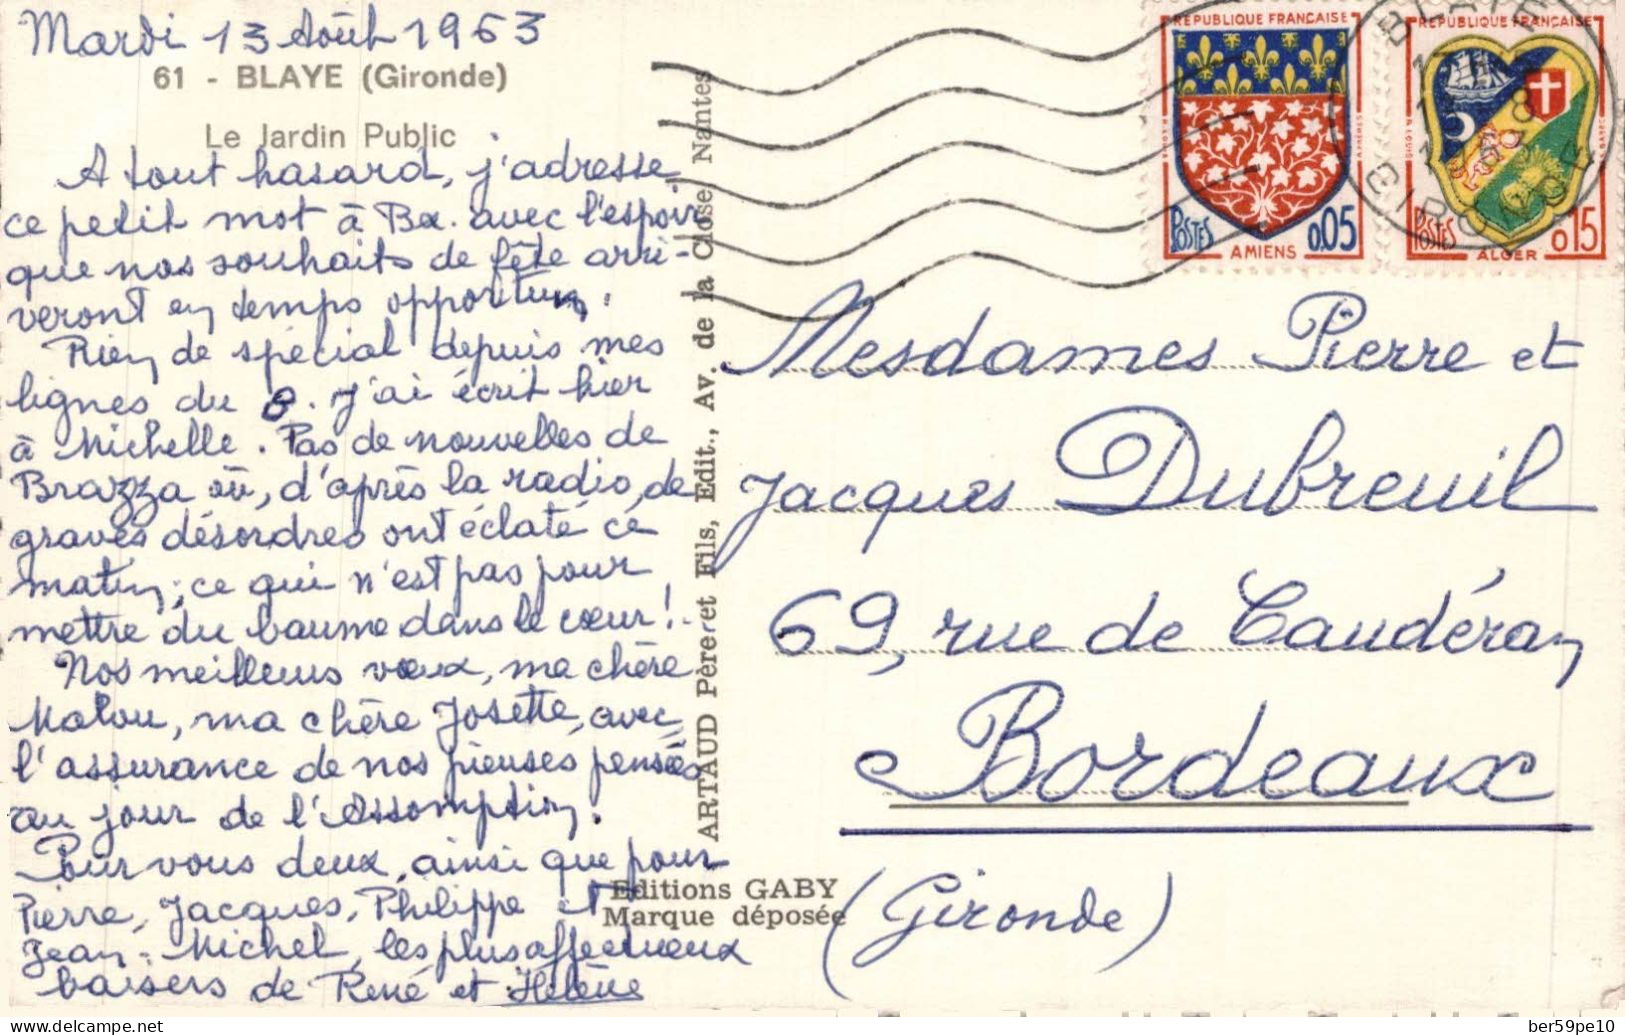 Mardi 13 Août 1963
61 - BLAYE (Gironde)
Le Jardin Public
A tout hasard, j'adresse
ce petit mot à Bx. avec l'espoir
que nos souhaits de fête arri-
veront en temps opportun.
Rien de spécial depuis mes
lignes du 8. J'ai écrit hier
à Michelle. Pas de nouvelles de
Brazza où, d'après la radio, de
graves désordres ont éclaté ce
matin; ce qui n'est pas pour
mettre du baume dans le cœur!
Nos meilleurs vœux, ma chère
Malou, ma chère Josette, avec
l'assurance de nos pieuses pensées
au jour de l'Assomption.
Pour vous deux, ainsi que pour
Pierre, Jacques, Philippe et
Jean-Michel, les plus affectueux
baisers de René et Hélène
ARTAUD Père et Fils, Edit., Av. de la Close, Nantes
Editions GABY
Marque déposée
REPUBLIQUE FRANÇAISE
POSTES
0,05
AMIENS
REPUBLIQUE FRANÇAISE
POSTES
0,15
ALGER
BLAYE
GIRONDE
Mesdames Pierre et
Jacques Dubreuil
69, rue de Caudéran
Bordeaux
(Gironde)
www.delcampe.net
ber59pe10